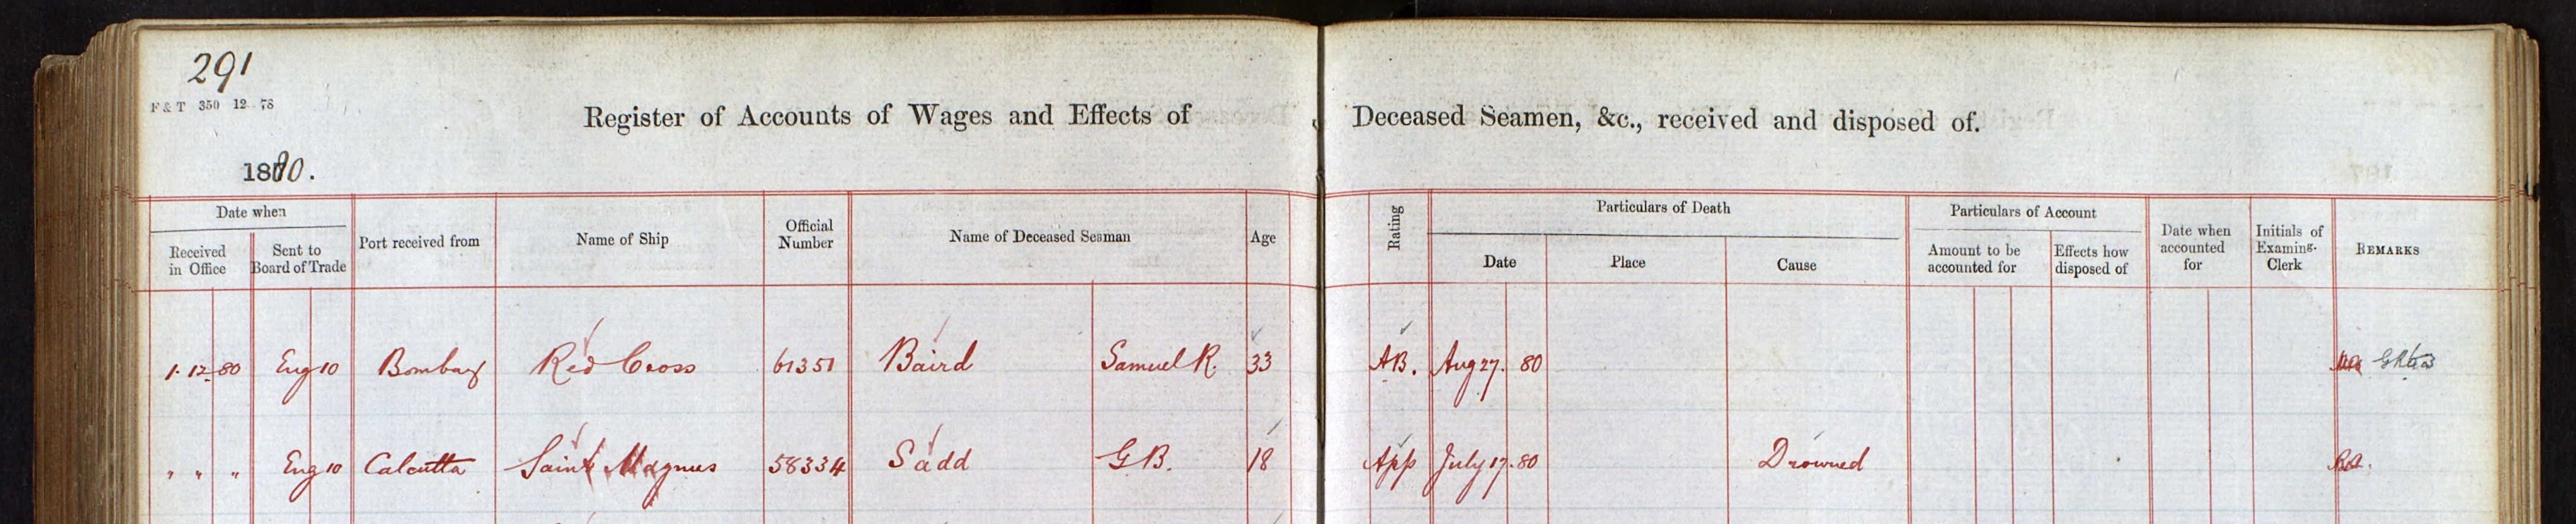 291
F & T 350 12 78
Register of Accounts of Wages and Effects of Deceased Seamen, &c., received and disposed of.
1880.
Date when
Received in Office
Sent to Board of Trade
Port received from
Name of Ship
Official Number
Name of Deceased Seaman
Age
Rating
Particulars of Death
Date
Place
Cause
Particulars of Account
Amount to be accounted for
Effects how disposed of
Date when accounted for
Initials of Examing. Clerk
REMARKS
1. 12 80 Eng 10 Bombay Red Cross 61351 Baird Samuel R. 33 AB. Aug 27. 80
" " " Eng 10 Calcutta Saint Magnus 58334 Sadd G B. 18 App July 17. 80 Drowned